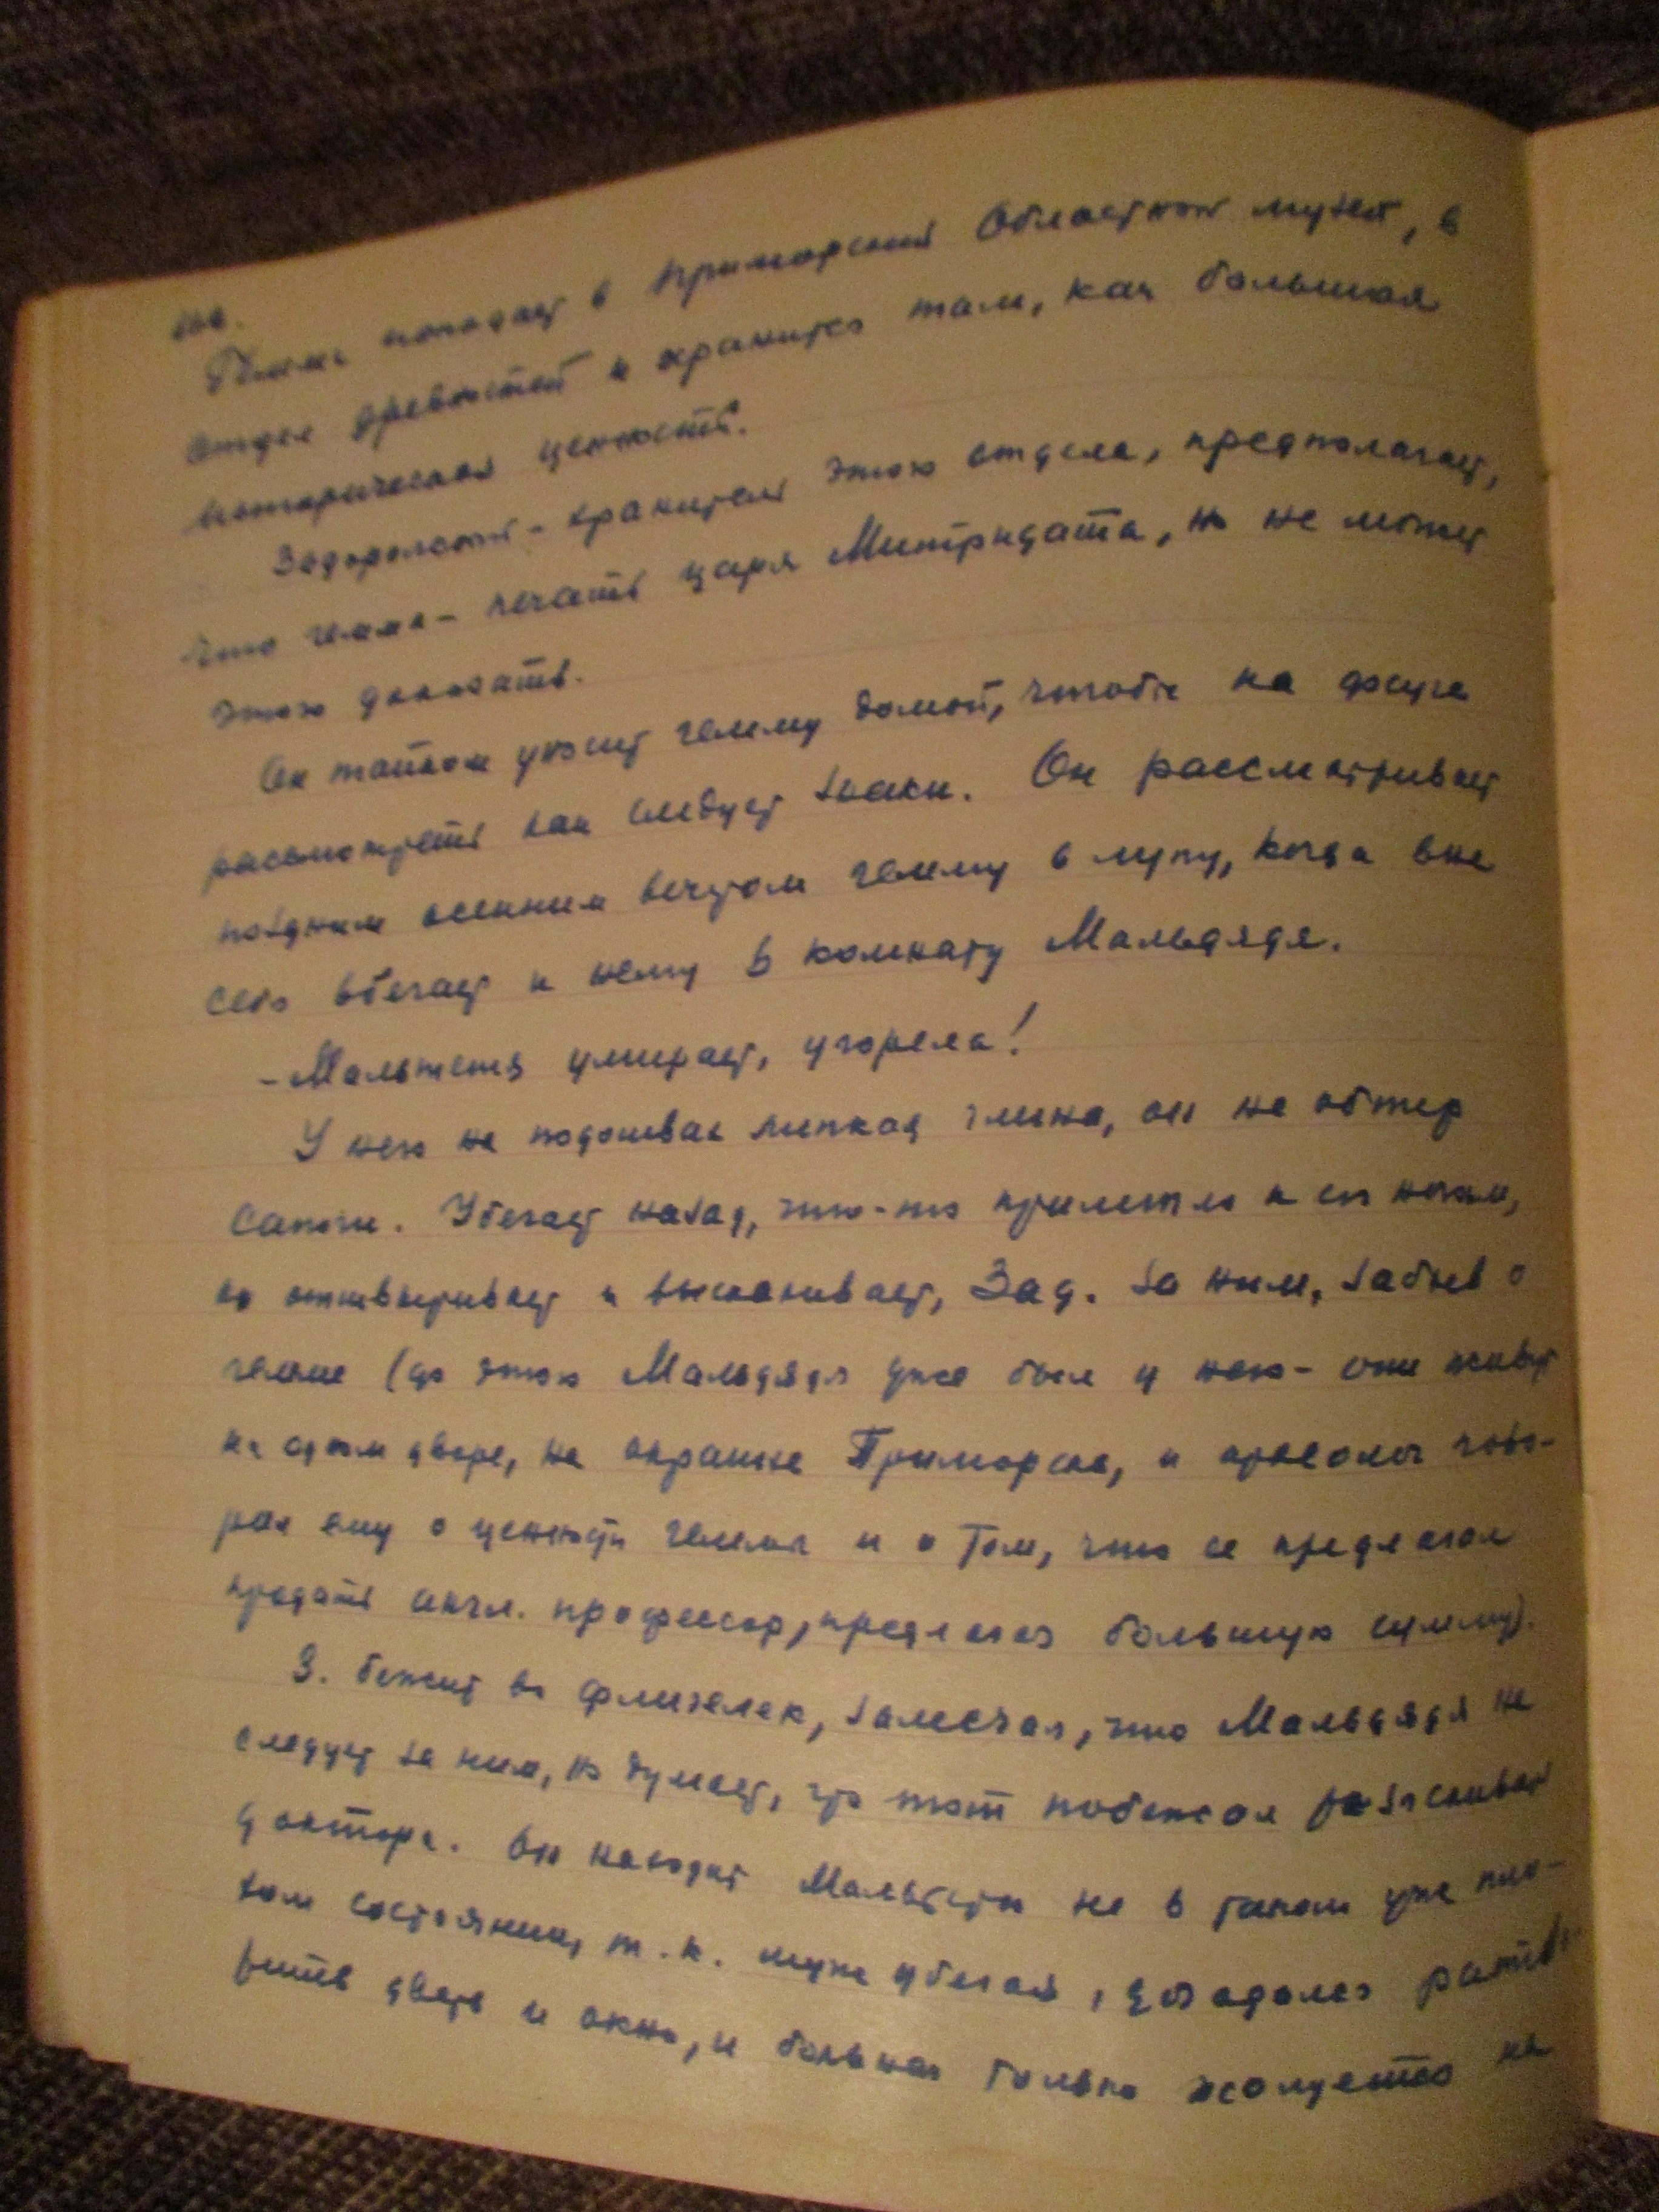 Гемма попадает в Приморский Областной музей, в
отдел древностей и хранится там, как большая
историческая ценность.
Задорожный - хранитель этого отдела, предполагает,
что гемма - печать царя Митридата, но не может
этого доказать.
Он тайком уносит гемму домой, чтобы на досуге
рассмотреть как следует знаки. Он рассматривает
поздним осенним вечером гемму в лупу, когда вне
себя вбегает к нему в комнату Мальдядя.
- Мальтетя умирает, угорела!
У него на подошвах липкая глина, он не обтер
сапоги. Убегает назад, что-то прилипло к его ногам,
он отшвыривает и выскакивает, Зад. за ним, забыв о
гемме (до этого Мальдядя уже был у него - они живут
на одном дворе, на окраине Приморска, и археолог гово-
рил ему о ценности геммы и о том, что ее предлагал
продать англ. профессор, предлагая большую сумму).
З. бежит во флигелек, замечая, что Мальдядя не
следует за ним, но думает, что тот побежал разыскивать
доктора. Он находит Мальтетю не в таком уже пло-
хом состоянии, т.к. муж убегая, догадался раство-
рить дверь и окно, и больная только жалуется на